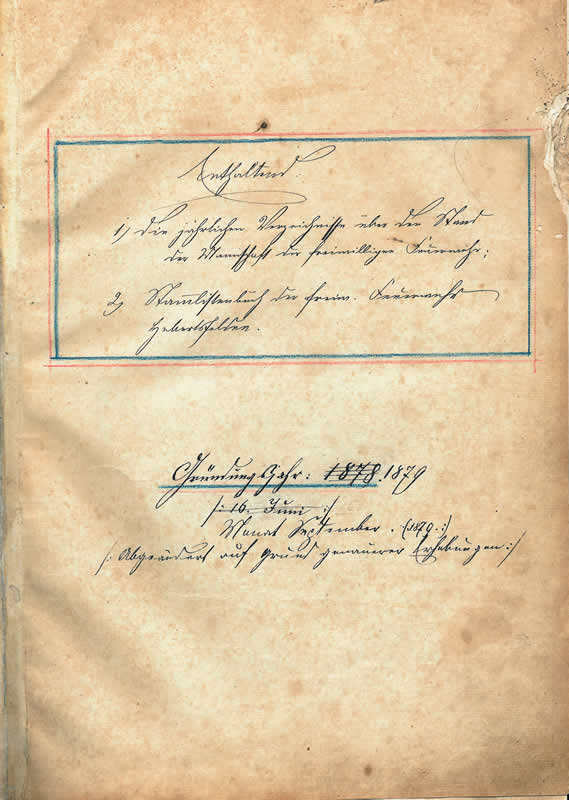 Enthaltend:
1) Die jährlichen Verzeichnisse über den Stand
der Mannschaft der freiwilligen Feuerwehr;
2) Stammlistenbuch der freiw. Feuerwehr
Hebertsfelden.
Gründungsjahr: 1878. 1879
/: 10. Juni :/
Monat September . (1879 :/
/: Abgeändert auf Grund genauerer Erhebungen :/